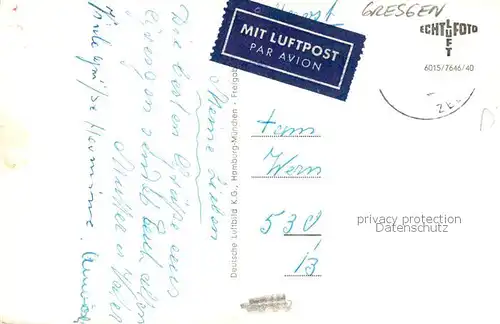 GRESGEN
MIT LUFTPOST
PAR AVION
ECHT FOTO
LUFT
6015/7646/40
Meine Lieben
Die besten Grüße aus
Gresgen sendet Euch allen
Mutter u. Vater
Viele Grüße Hermine.
Deutsche Luftbild K.G., Hamburg-München - Freigab
Fam
Wern
530
13
privacy protection
Datenschutz